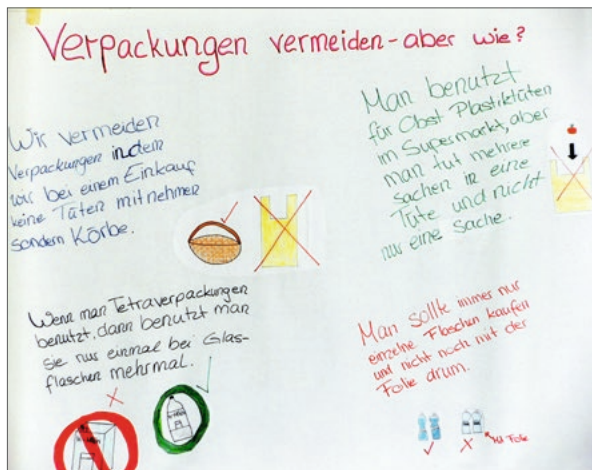 Verpackungen vermeiden - aber wie?
Wir vermeiden
Verpackungen indem
wir bei einem Einkauf
keine Tüten mitnehmen
sondern Körbe.
Man benutzt
für Obst Plastiktüten
im Supermarkt, aber
man tut mehrere
sachen in eine
Tüte und nicht
nur eine Sache.
Wenn man Tetraverpackungen
benutzt, dann benutzt man
sie nur einmal bei Glas-
flaschen mehrmal.
Man sollte immer nur
einzelne Flaschen kaufen
und nicht noch mit der
Folie drum.
mit Folie